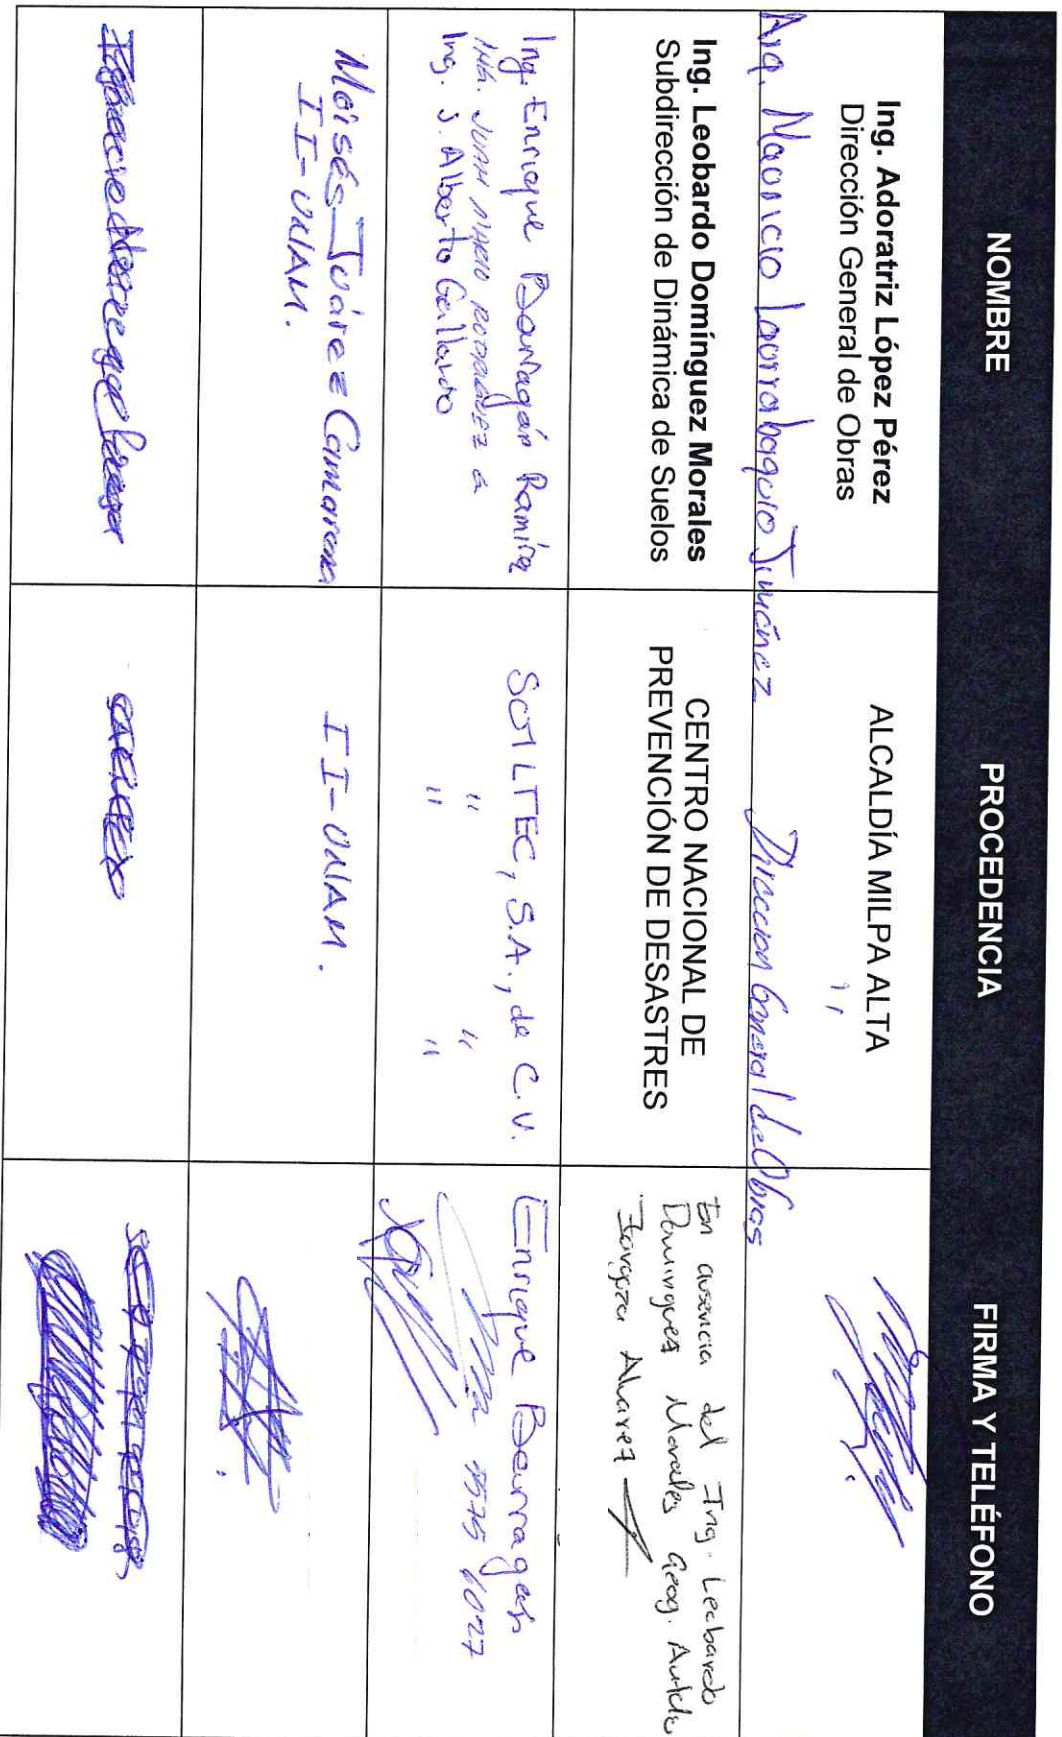 NOMBRE
PROCEDENCIA
FIRMA Y TELÉFONO
Ing. Adoratriz López Pérez
Dirección General de Obras
Arq. Mauricio Jiménez
ALCALDÍA MILPA ALTA
"
Dirección General de Obras
Ing. Leobardo Domínguez Morales
Subdirección de Dinámica de Suelos
CENTRO NACIONAL DE
PREVENCIÓN DE DESASTRES
En ausencia del Ing. Leobardo
Dominguez Morales Geog.
Alvarez
Ing. Enrique Barragán Ramírez
ING. JUAN MARIO RODRIGUEZ
Ing. S. Alberto Gallardo
SOILTEC, S.A., de C.V.
" "
" "
Enrique Barragan
5575 6027
Moisés Juárez Camarena
II-UNAM.
II-UNAM.